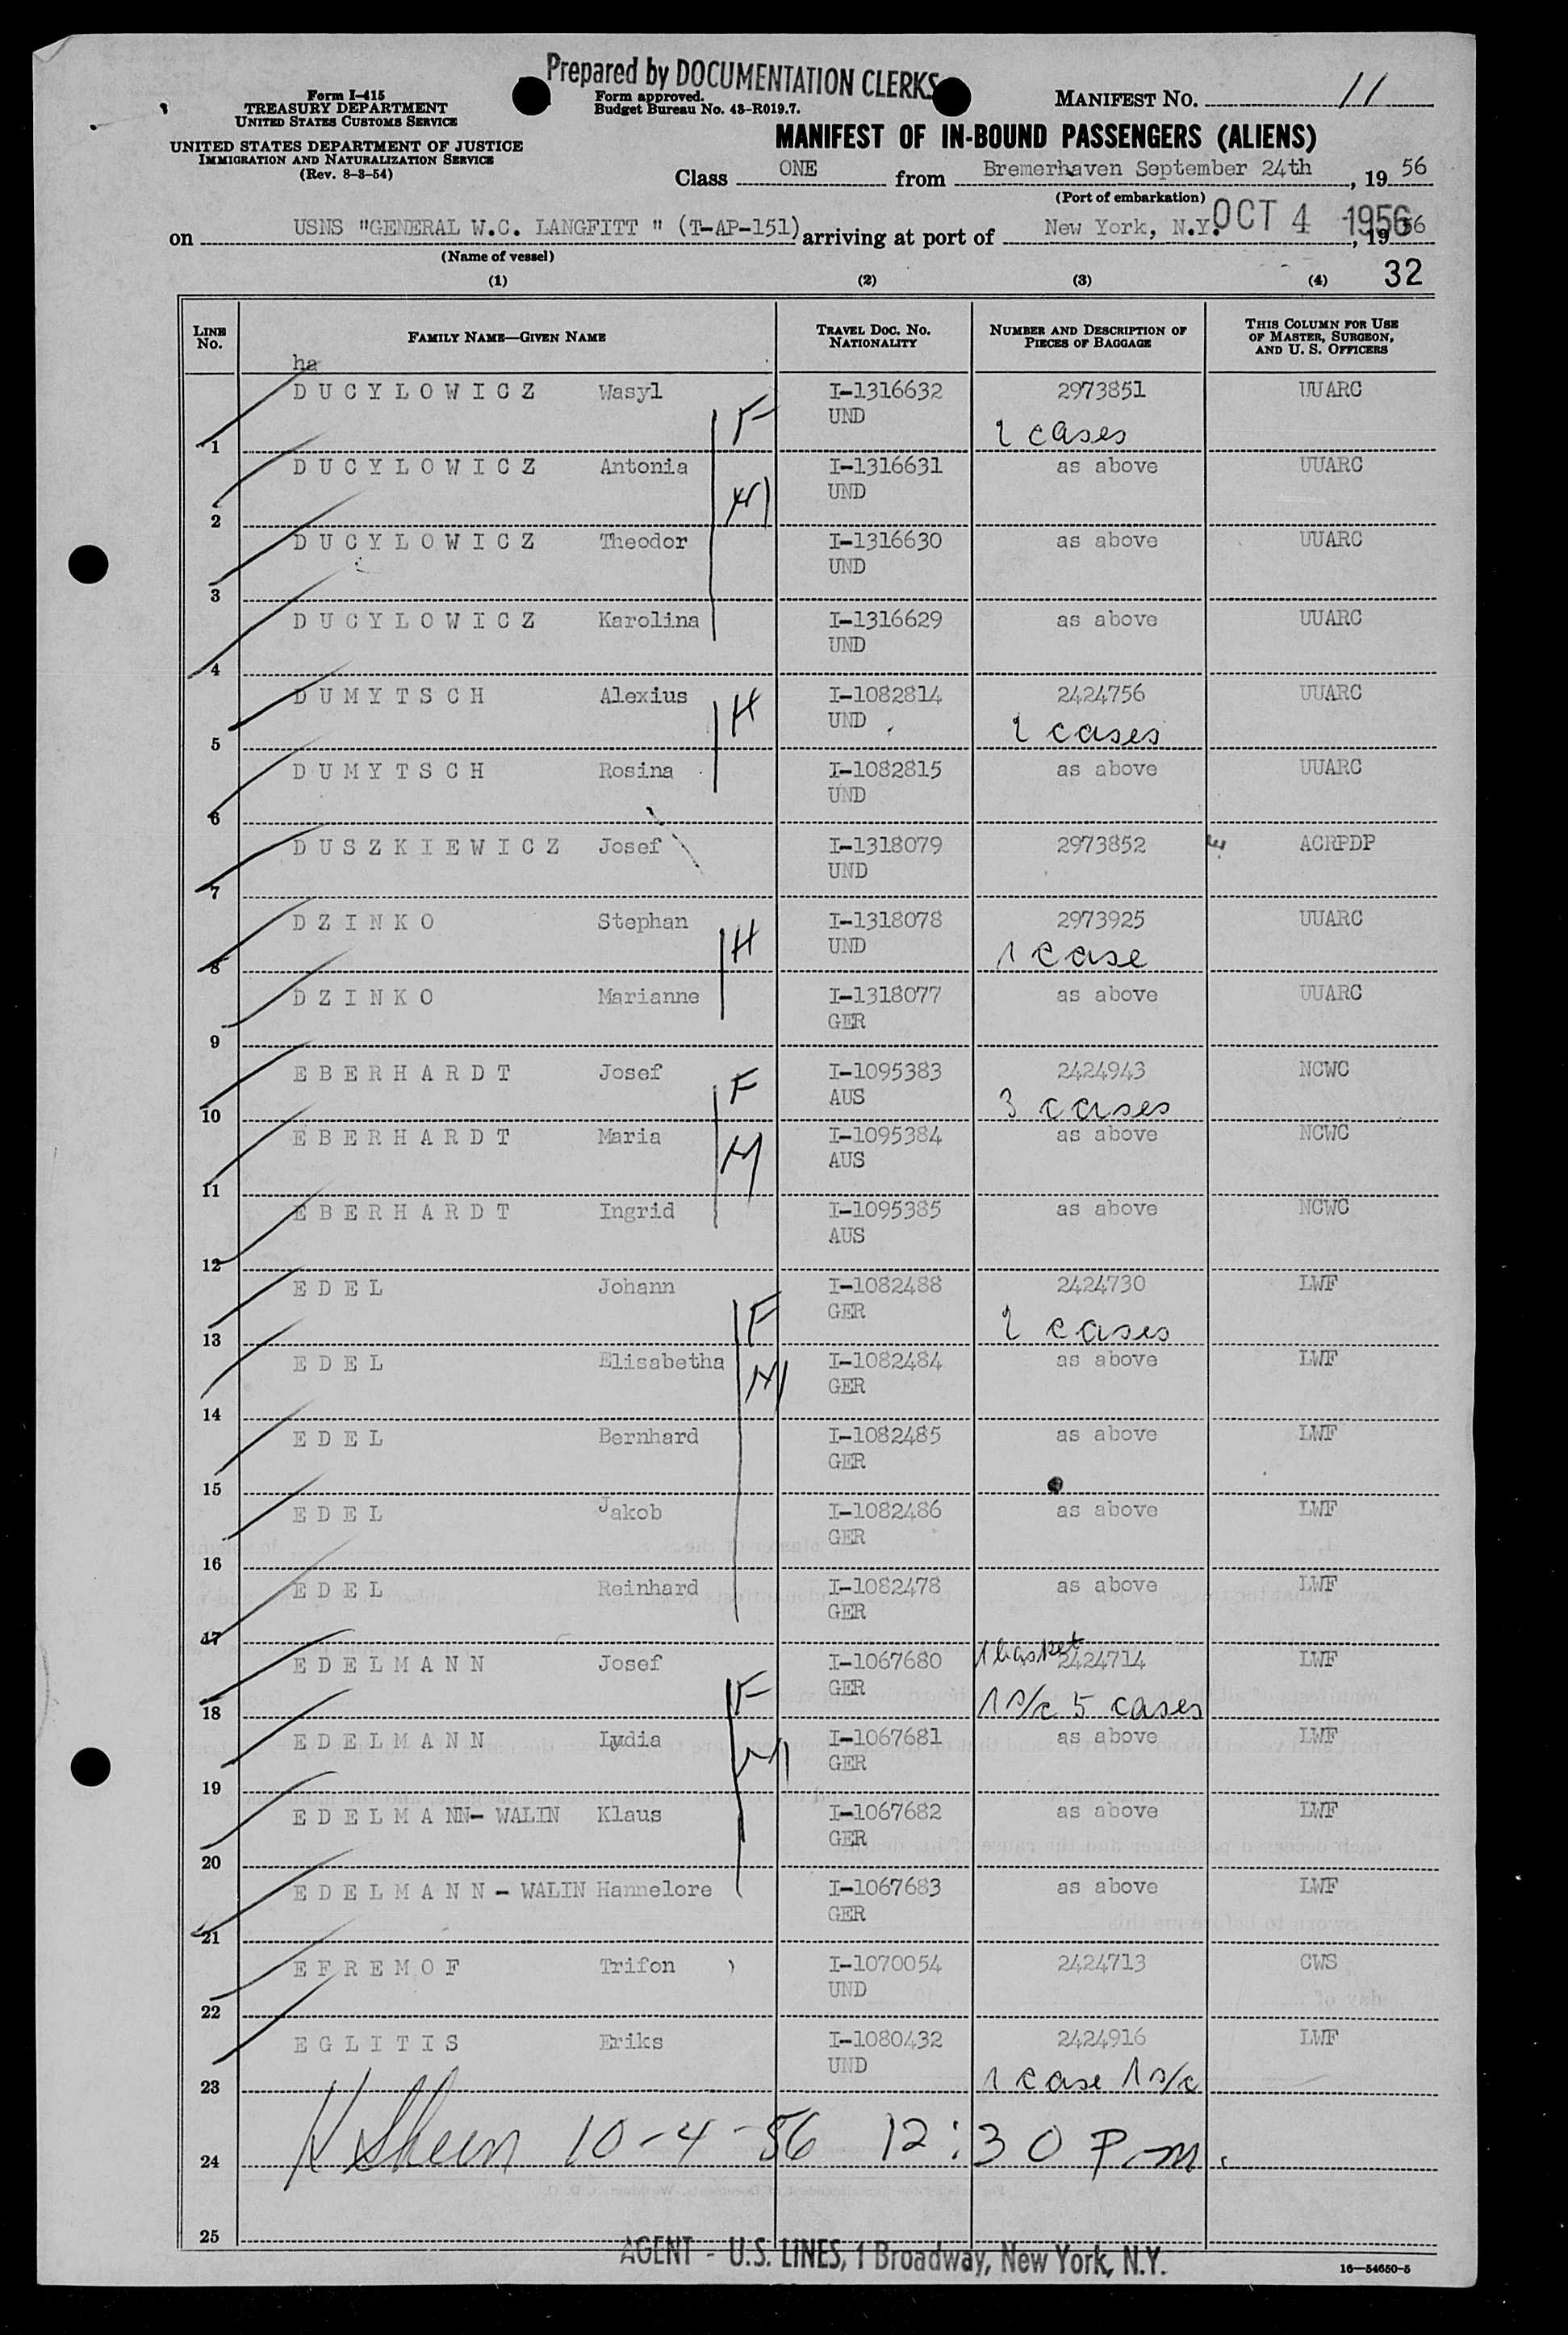 Prepared by DOCUMENTATION CLERKS
Form I-415
TREASURY DEPARTMENT
UNITED STATES CUSTOMS SERVICE
UNITED STATES DEPARTMENT OF JUSTICE
IMMIGRATION AND NATURALIZATION SERVICE
(Rev. 8-3-54)
Form approved.
Budget Bureau No. 43-R019.7.
MANIFEST NO. 11
MANIFEST OF IN-BOUND PASSENGERS (ALIENS)
Class ONE from Bremerhaven September 24th, 19 56
(Port of embarkation)
on USNS "GENERAL W.C. LANGFITT " (T-AP-151) arriving at port of New York, N.Y. OCT 4 1956, 19 56
(Name of vessel)
(1) (2) (3) (4) 32
LINE NO. FAMILY NAME—GIVEN NAME TRAVEL DOC. NO. NATIONALITY NUMBER AND DESCRIPTION OF PIECES OF BAGGAGE THIS COLUMN FOR USE OF MASTER, SURGEON, AND U. S. OFFICERS
ha
D U C Y L O W I C Z Wasyl I-1316632 2973851 UUARC
F UND
1 2 cases
D U C Y L O W I C Z Antonia I-1316631 as above UUARC
M UND
2
D U C Y L O W I C Z Theodor I-1316630 as above UUARC
UND
3
D U C Y L O W I C Z Karolina I-1316629 as above UUARC
UND
4
D U M Y T S C H Alexius I-1082814 2424756 UUARC
H UND
5 2 cases
D U M Y T S C H Rosina I-1082815 as above UUARC
UND
6
D U S Z K I E W I C Z Josef I-1318079 2973852 E ACRPDP
UND
7
D Z I N K O Stephan I-1318078 2973925 UUARC
H UND
8 1 case
D Z I N K O Marianne I-1318077 as above UUARC
GER
9
E B E R H A R D T Josef I-1095383 2424943 NCWC
F AUS
10 3 cases
E B E R H A R D T Maria I-1095384 as above NCWC
M AUS
11
E B E R H A R D T Ingrid I-1095385 as above NCWC
AUS
12
E D E L Johann I-1082488 2424730 LWF
F GER
13 2 cases
E D E L Elisabetha I-1082484 as above LWF
M GER
14
E D E L Bernhard I-1082485 as above LWF
GER
15
E D E L Jakob I-1082486 as above LWF
GER
16
E D E L Reinhard I-1082478 as above LWF
GER
17
1 basket
E D E L M A N N Josef I-1067680 2424714 LWF
F GER
18 1 s/c 5 cases
E D E L M A N N Lydia I-1067681 as above LWF
M GER
19
E D E L M A NN- WALIN Klaus I-1067682 as above LWF
GER
20
E D E L M A N N - WALIN Hannelore I-1067683 as above LWF
GER
21
E F R E M O F Trifon I-1070054 2424713 CWS
UND
22
E G L I T I S Eriks I-1080432 2424916 LWF
UND
23 1 case 1 s/c
10-4-56 12:30 P.m.
24
25
AGENT - U.S. LINES, 1 Broadway, New York, N.Y.
16—54650-5